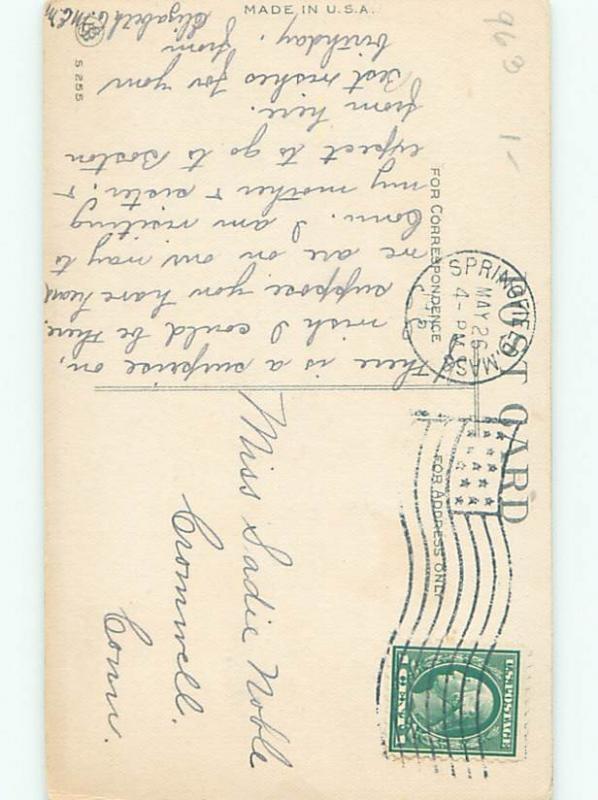 POST CARD
FOR CORRESPONDENCE
FOR ADDRESS ONLY
SPRINGFIELD, MASS.
MAY 26
4-PM
U.S. POSTAGE
1 CENT 1
There is a surprise on,
wish I could be there.
suppose you have heard
we are on our way to
Conn. I am visiting
my mother & sister, &
expect to go to Boston
from here.
Best wishes for your
birthday, from
Elizabeth C.
Miss Sadie Noble
Cromwell.
Conn.
MADE IN U.S.A.
S 255
963
1-